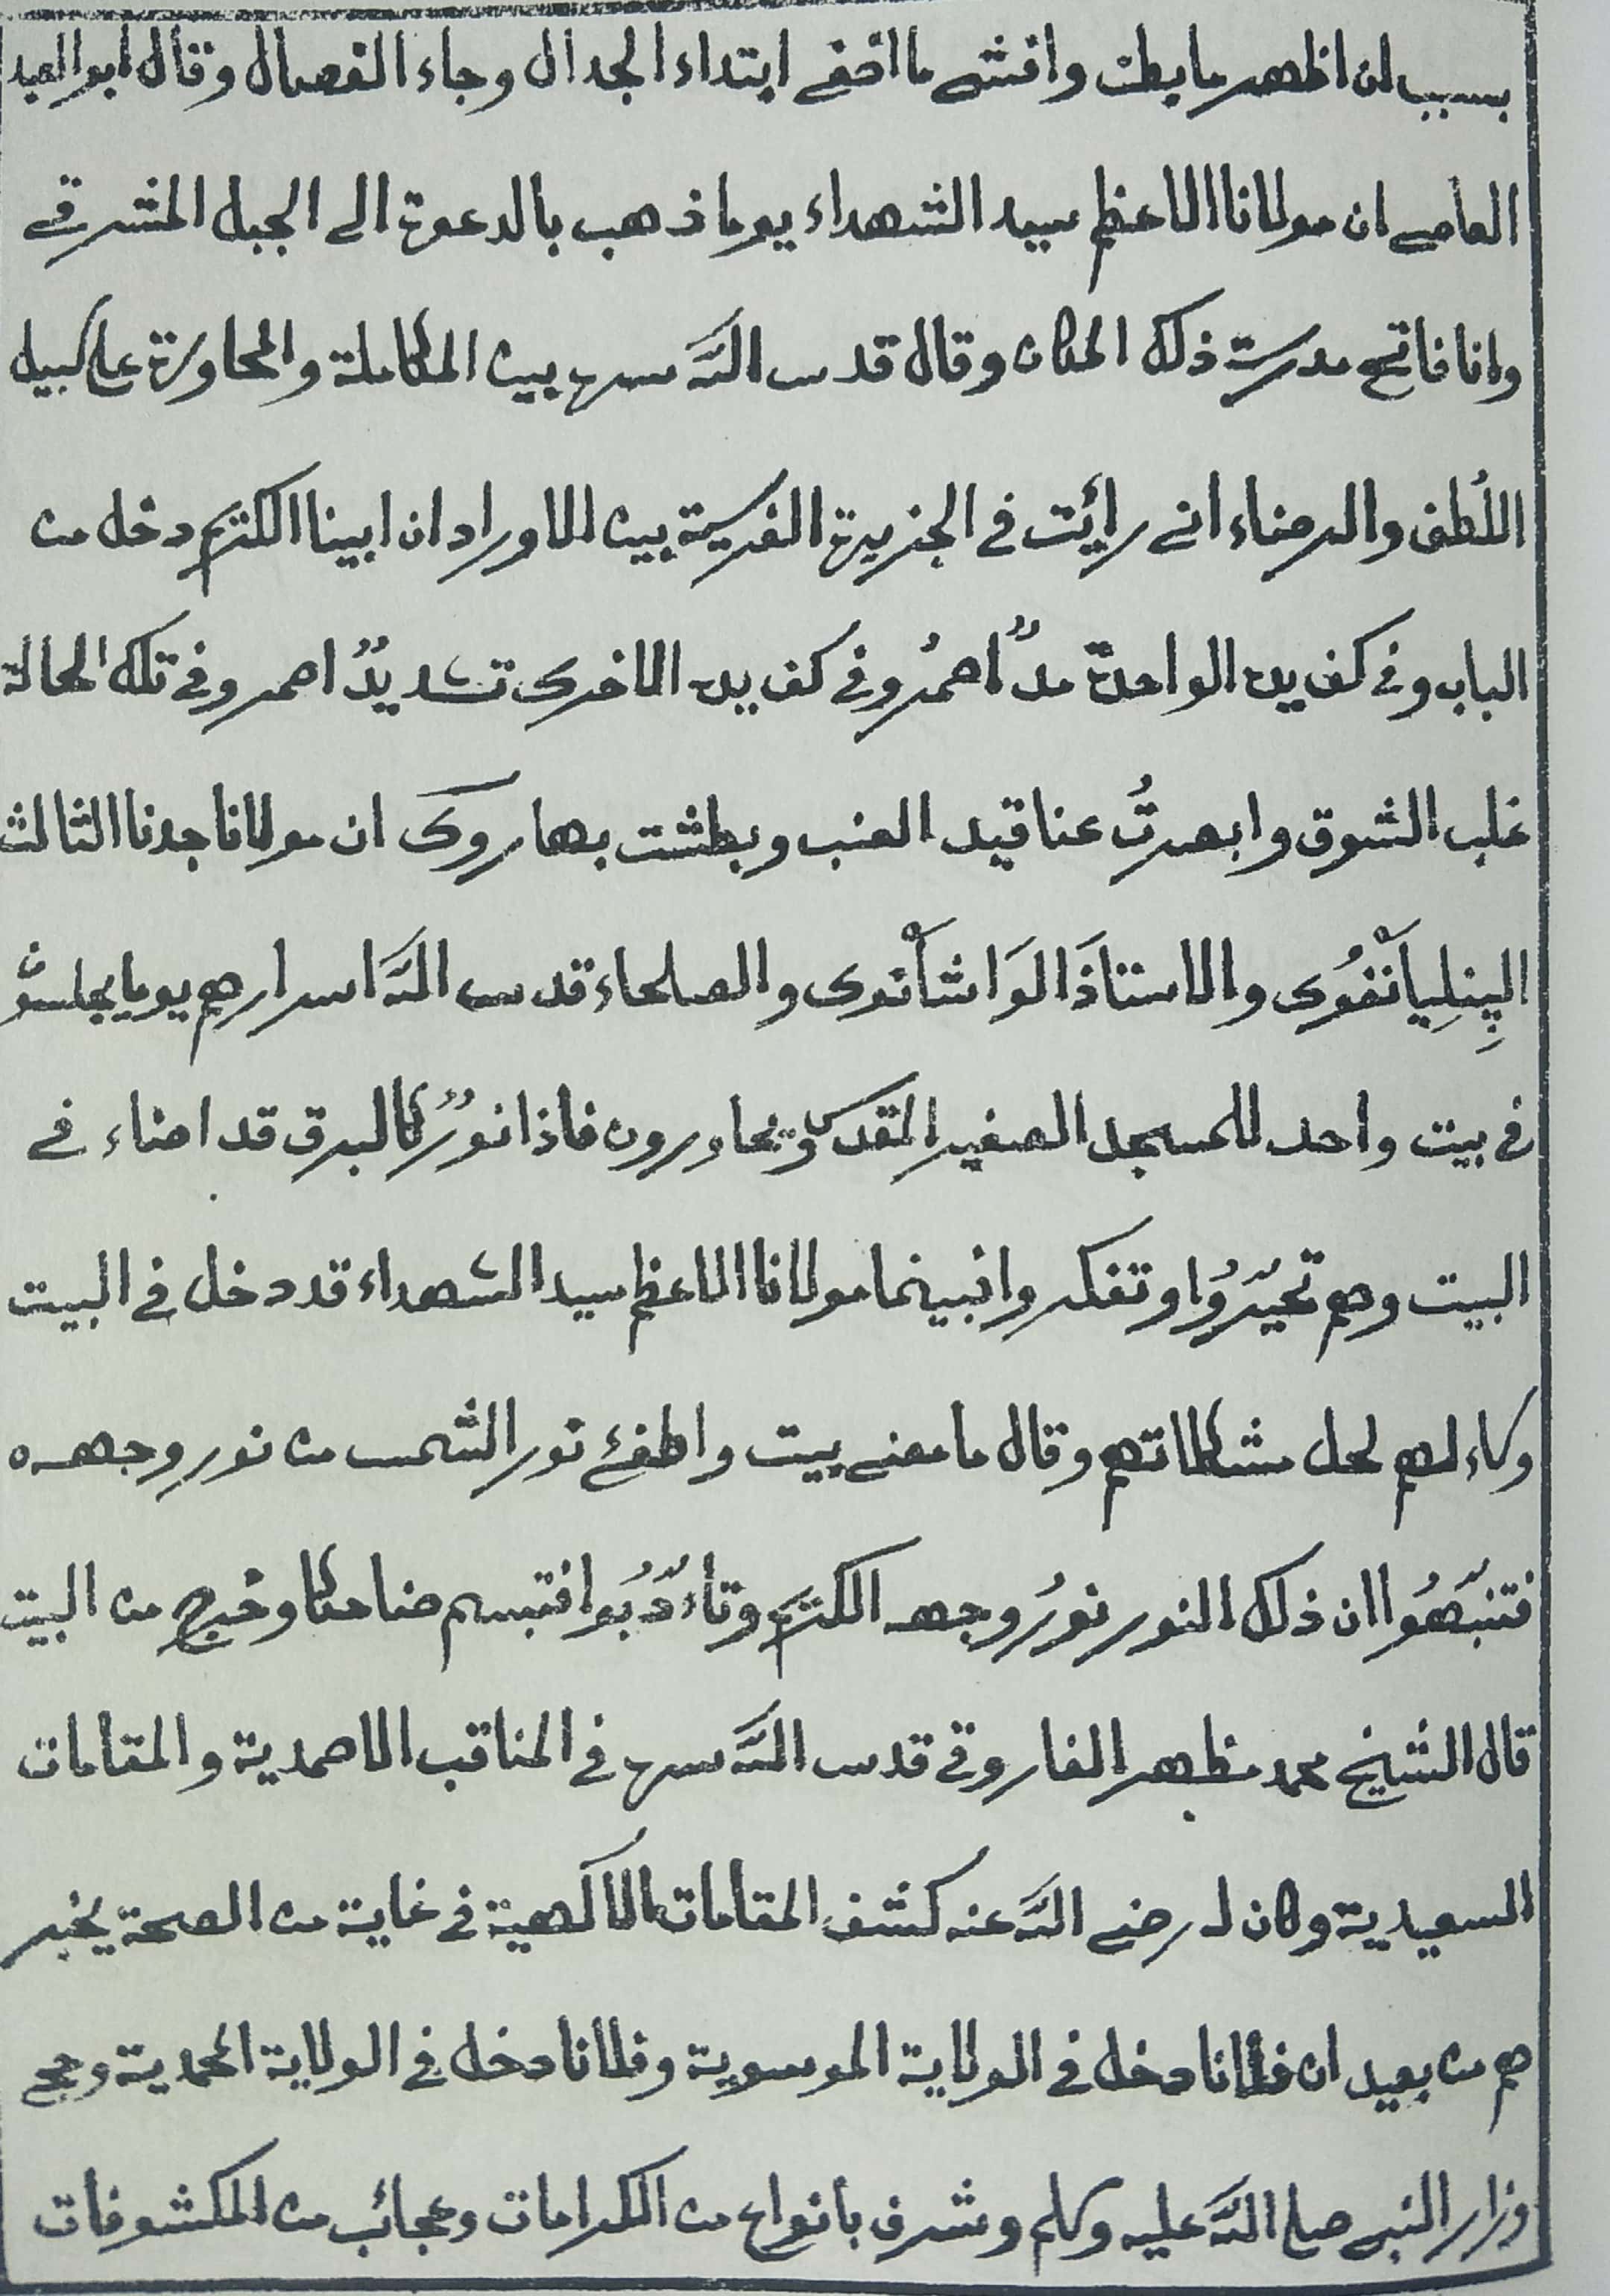 بسبب ان اظهر ما بطن وافشى ما اخفى ابتداء الجدال وجاء الفصال وقال ابو العبد
العاصى ان مولانا الاعظم سيد الشهداء يوما ذهب بالدعوة الى الجبل المشرقى
وانا فاتح مدرسة ذلك المكان وقال قدس الله سره بين المكاملة والمحاورة على سبيل
اللُطف والرضاء انى رائيت فى الجزيرة الفرسية بين الاوراد ان ابينا الكريم دخل من
الباب وفى كف يده الواحدة مدٌّ احمرُ وفى كف يده الاخرى تشديدٌ احمر وفى تلك الحالة
غلب الشوق وابصرتُ عناقيد العنب وبطشت بها روى ان مولانا جدنا الثالث
الپِنلِيانْفُوى والاستاذَ الوَاشَأنْدى والصلحاء قدس الله اسرارهم يوما يجلسون
فى بيت واحد للمسجد الصغير المقدس ويحاورون فاذا نورٌ كالبرق قد اضاء فى
البيت وهم تحيّرُوا وتفكروا فبينما مولانا الاعظم سيد الشهداء قد دخل فى البيت
وكاء لهم لحل مشكلاتهم وقال ما معنى بيت واطفئ نور الشمس من نورِ وجهه
فتنبّهُوا ان ذلك النور نورُ وجهه الكريم وتاءدّبُوا فتبسم ضاحكا وخرج من البيت
قال الشيخ محمد مظهر الفاروقى قدس الله سره فى المناقب الاحمدية والمقامات
السعيدية وكان له رضى الله عنه كشف المقامات الالهية فى غاية من الصحة يخبر
هم من بعيد ان فلانا دخل فى الولاية الموسوية وفلانا دخل فى الولاية المحمدية وحج
وزار النبى صلى الله عليه وسلم وشرف بانواع من الكرامات وعجائب من المكشوفات